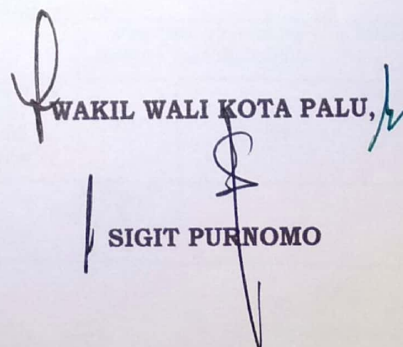 WAKIL WALI KOTA PALU,
SIGIT PURNOMO